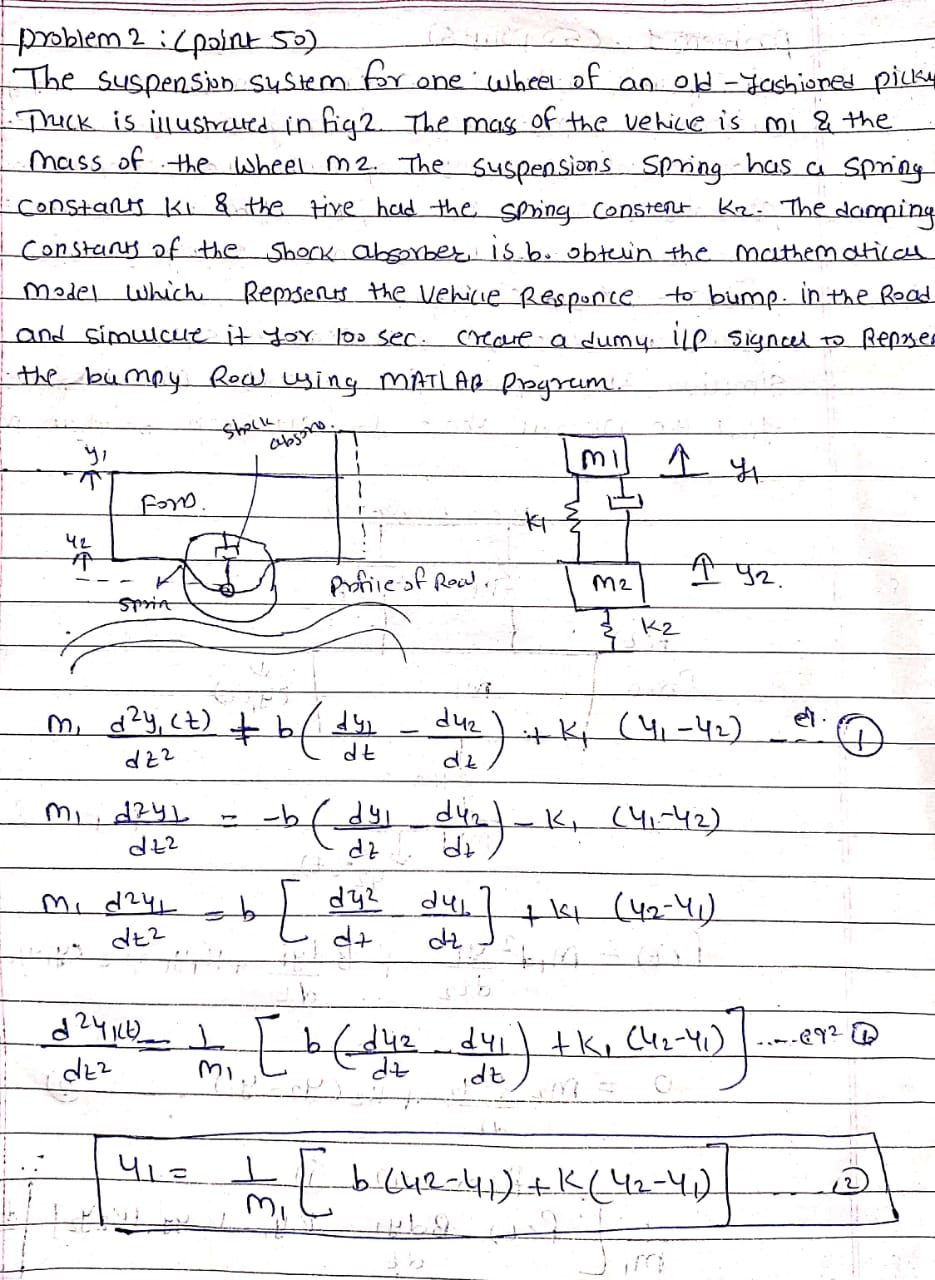 problem 2 : (point 50)
The suspension system for one wheel of an old-fashioned picku
Truck is illustrated in fig 2. The mass of the vehicle is m1 & the
mass of the wheel m2. The suspensions spring has a spring
constants k1 & the tire had the spring constent K2. The damping
constants of the shock absorber is b. obtain the mathematical
model which Represents the vehicle Responce to bump. in the Road
and simulate it for 100 sec. create a dumy i/p signal to Reprse
the bumpy Road using MATLAB program.
shock
absino.
y1
Ford.
y2
sprin
Profile of Road.
m1
y1
K1
m2
y2.
K2
m1 d²y1(t)/dt² + b(dy1/dt - dy2/dt) + K1 (y1-y2) --- eq. ①
m1 d²y1/dt² = -b(dy1/dt - dy2/dt) - K1 (y1-y2)
m1 d²y1/dt² = b[dy2/dt dy1/dt] + k1 (y2-y1)
d²y1(t)/dt² = 1/m1 [b(dy2/dt - dy1/dt) + K1 (y2-y1)] ....eq2 ①
∴ y1 = 1/m1 [b(y2-y1) + K(y2-y1)] ... ②